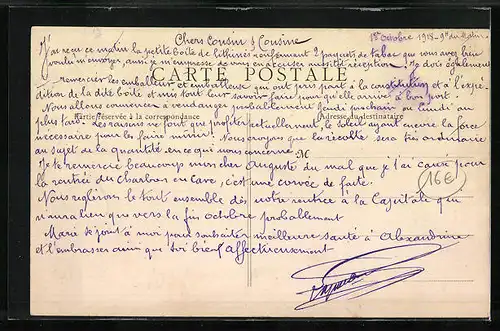 Chers Cousin & Cousine
1er Octobre 1918 - 9h du matin
J'ai reçu ce matin la petite boîte de lithinés renfermant 2 paquets de tabac que vous avez bien
voulu m'envoyer, aussi je m'empresse de vous en accuser réception. Je dois également
CARTE POSTALE
remercier les emballeur et emballeuse qui ont pris part à la constitution et à l'expé-
dition de la dite boîte et vous tout leur savoir faire pour qu'elle arrive à bon port
Nous allons commencer à vendanger probablement Jeudi prochain ou lundi au
plus tard. Les raisins ne font que profiter actuellement, le soleil ayant encore la force
Partie réservée à la correspondance
Adresse du destinataire
nécessaire pour les faire mûrir. Nous croyons que la récolte sera très ordinaire
au sujet de la quantité, en ce qui nous concerne.
M
Je te remercie beaucoup mon cher Auguste du mal que je t'ai causé pour
la rentrée du charbon en cave, c'est une corvée de faite.
16€
Nous règlerons le tout ensemble dès notre rentrée à la Capitale qui
n'aura lieu que vers la fin Octobre probablement
Marie se joint à moi pour souhaiter meilleure santé à Alexandrine
et t'embrasser ainsi que toi bien affectueusement